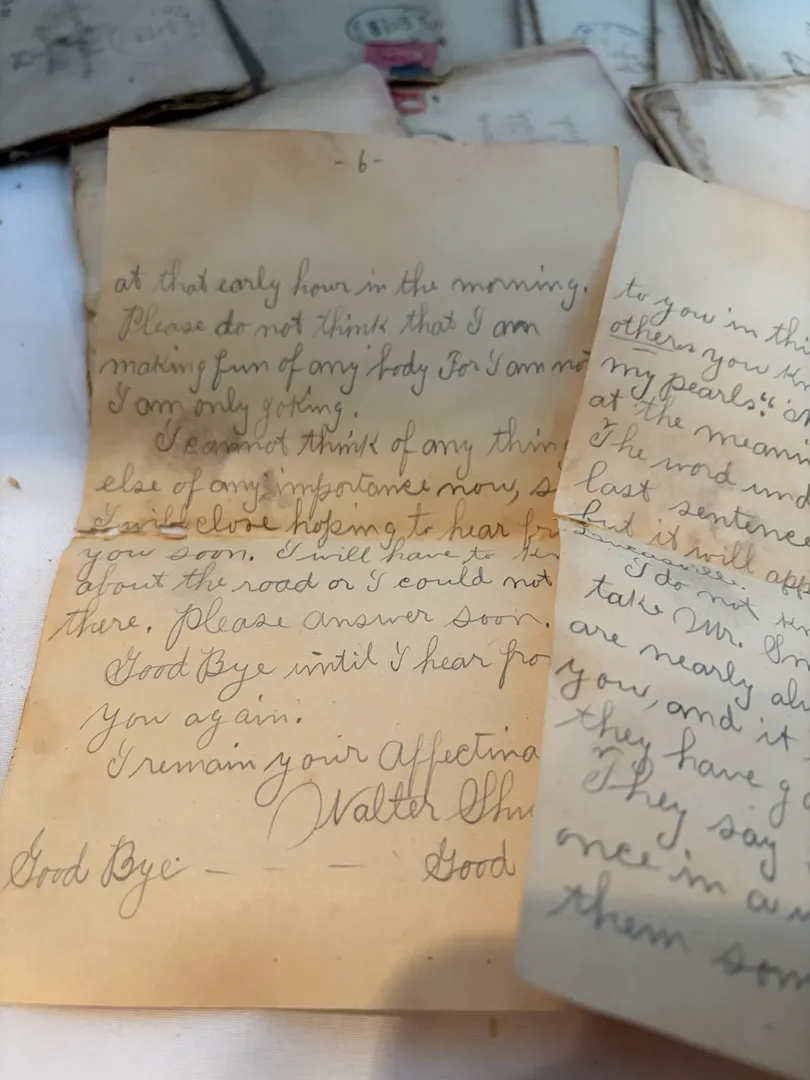 - 6 -
at that early hour in the morning.
Please do not think that I am
making fun of any body For I am not
I am only goking.
I cannot think of any thing
else of any importance now, s
I will close hoping to hear fr
you soon. I will have to
about the road or I could not
there. Please answer soon.
Good Bye until I hear fro
you again.
I remain your Affectina
Walter Shu
Good Bye - - - Good
to you in thi
others you kn
my pearls."
at the meann
The word und
last sentence
but it will app
I do not kn
take Mr. Sm
are nearly alw
you, and it
they have go
They say
once in a
them som